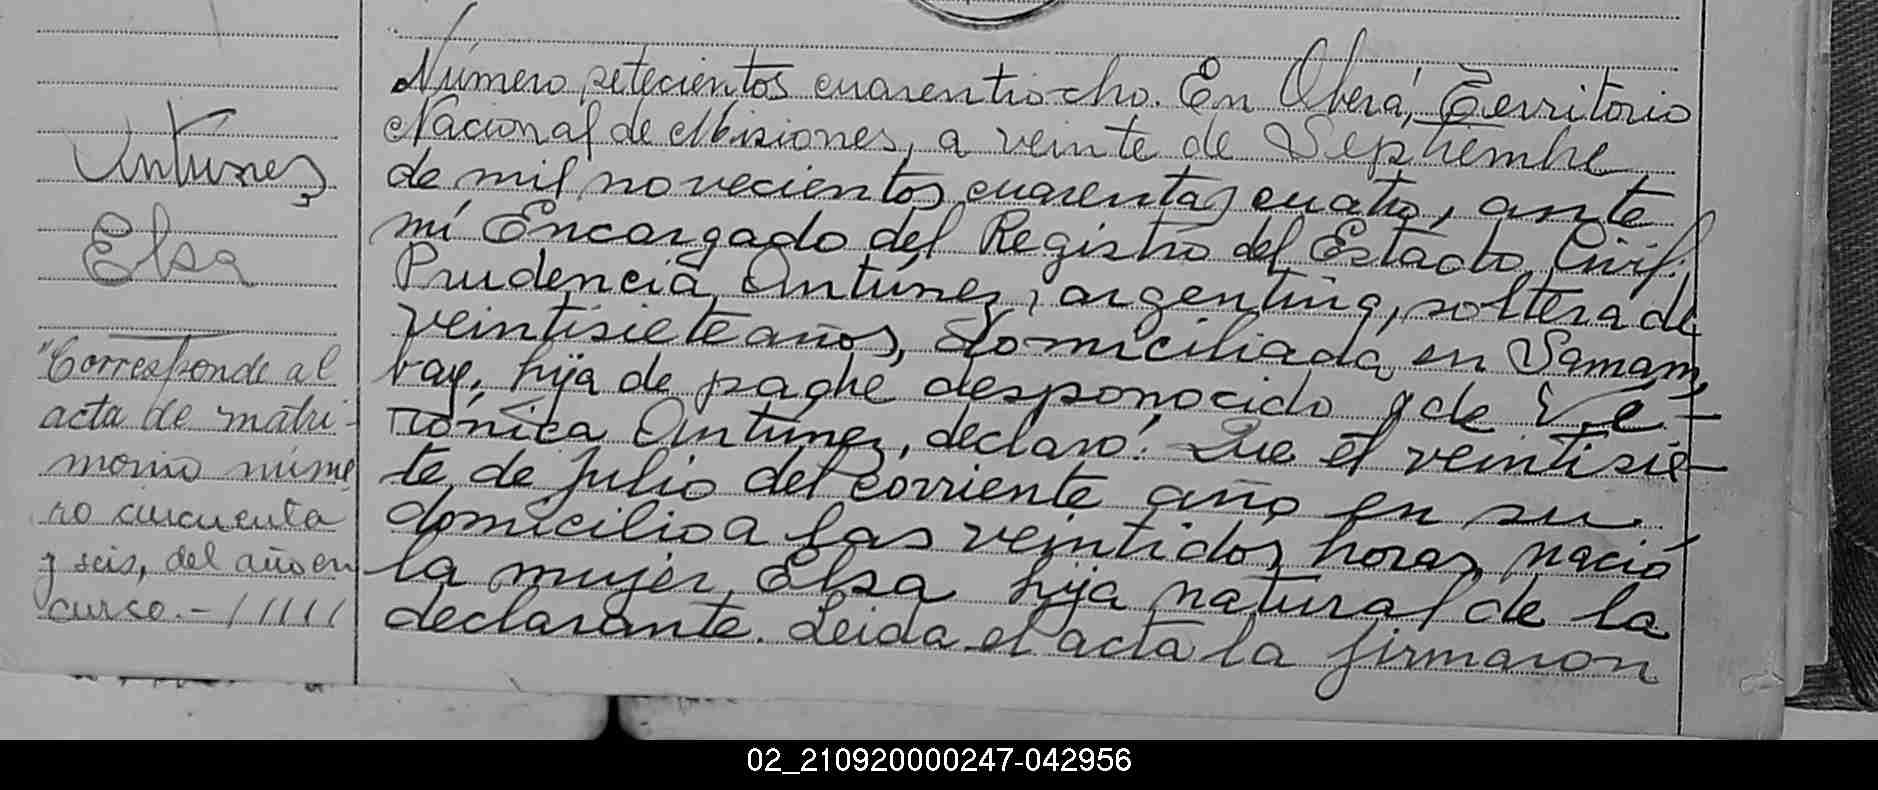 Antunez
Elsa
"Corresponde al
acta de matri-
monio núme
ro cincuenta
y seis, del año en
curso.- / / / / /
Número setecientos cuarentiocho. En Oberá, Territorio
Nacional de Misiones, a veinte de Septiembre
de mil novecientos cuarenta y cuatro, ante
mí Encargado del Registro del Estado Civil;
Prudencia Antúnez, argentina, soltera de
veintisiete años, domiciliada en Samam
bay, hija de padre desconocido y de Ve-
rónica Antúnez, declaró: Que el veintisie-
te de Julio del corriente año en su
domicilio a las veintidos horas nació
la mujer Elsa hija natural de la
declarante. Leida el acta la firmaron
02_210920000247-042956